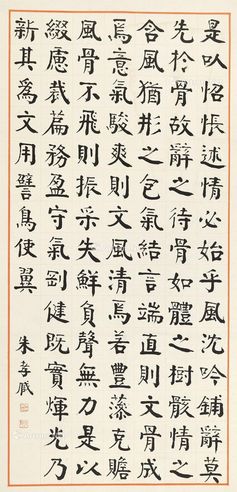 是以怊悵述情必始乎風沈吟鋪辭莫
先於骨故辭之待骨如體之樹骸情之
含風猶形之包氣結言端直則文骨成
焉意氣駿爽則文風清焉善豐藻克贍
風骨不飛則振采失鮮負聲無力是以
綴慮裁篇務盈守氣剛健既實輝光乃
新其為文用譬鳥使翼
朱孝臧